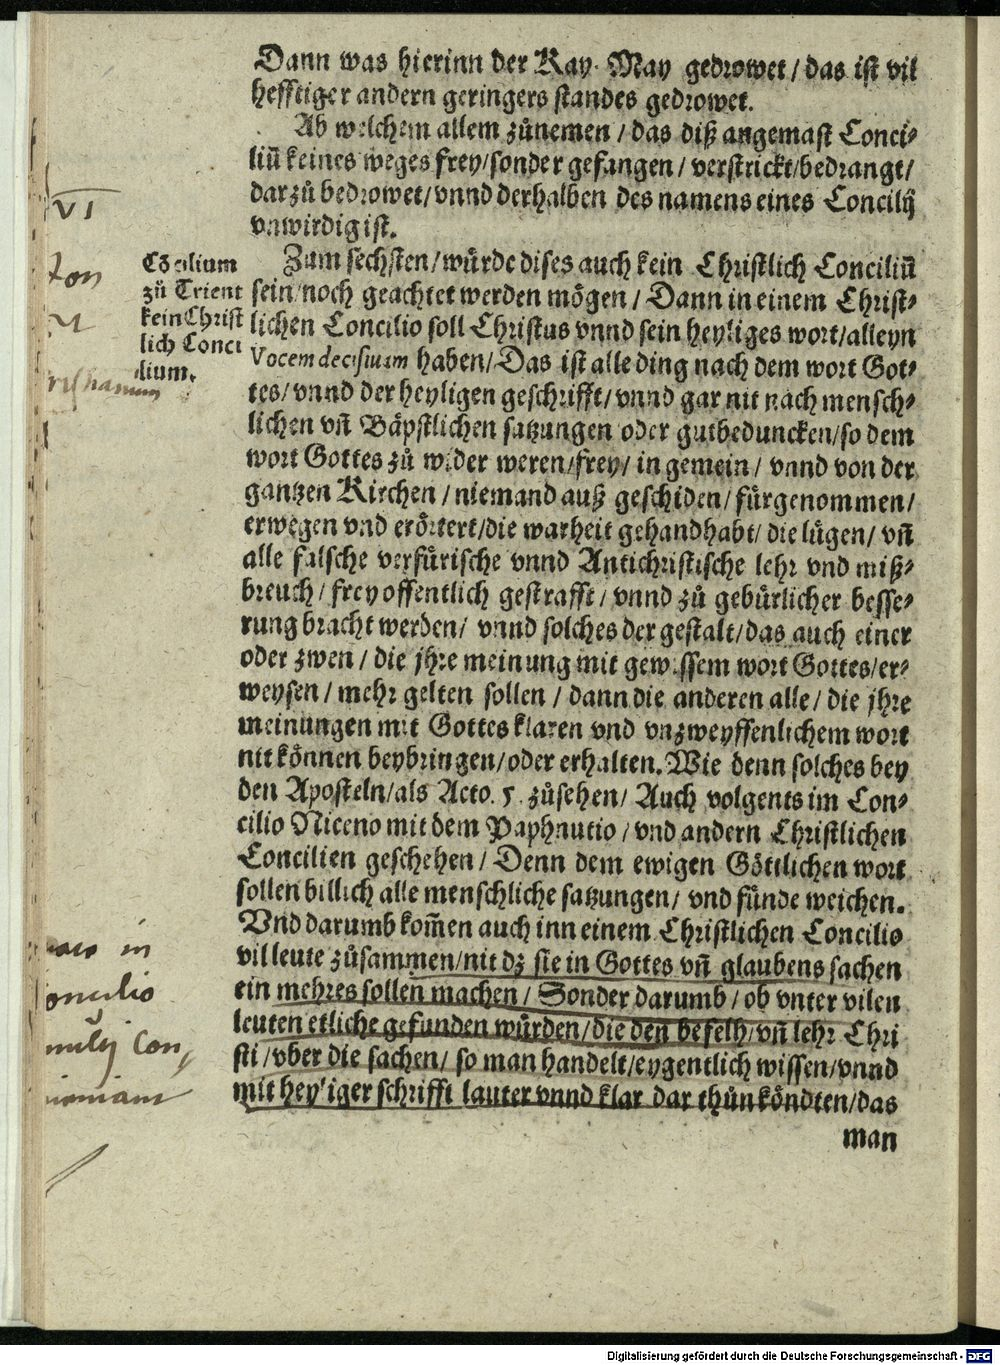 Dann was hierinn der Kay. May gedrowet / das ist vil
hefftiger andern geringers standes gedrowet.
Ab welchem allem zůnemen / das diß angemast Conci⸗
liū keines weges frey/sonder gefangen / verstrickt/bedrangt/
darzů bedrowet/vnnd derhalben des namens eines Concilij
vnwirdig ist.
VI
Cōcilium
zů Trient
kein Christ
lich Conci
lium.
Zum sechsten/würde dises auch kein Christlich Conciliū
sein/noch geachtet werden mögen / Dann in einem Christ⸗
lichen Concilio soll Christus vnnd sein heyliges wort/alleyn
Vocem decisiuam haben/Das ist alle ding nach dem wort Got⸗
tes/ vnnd der heyligen geschrifft/vnnd gar nit nach mensch⸗
lichen vñ Bäpstlichen satzungen oder gutbeduncken/so dem
wort Gottes zů wider weren/frey/ in gemein / vnnd von der
gantzen Kirchen / niemand auß geschiden/ fürgenommen/
erwegen vnd erörtert/die warheit gehandhabt/ die lügen/ vñ
alle falsche verfürische vnnd Antichristische lehr vnd miß⸗
breuch / frey offentlich gestrafft/ vnnd zů gebürlicher besse⸗
rung bracht werden/ vnnd solches der gestalt/das auch einer
oder zwen / die jhre meinung mit gewissem wort Gottes/er⸗
weysen / mehr gelten sollen / dann die anderen alle / die jhre
meinungen mit Gottes klaren vnd vnzweyffenlichem wort
nit können beybringen/oder erhalten. Wie denn solches bey
den Aposteln/als Acto. 5. zůsehen/ Auch volgents im Con⸗
cilio Niceno mit dem Paphnutio / vnd andern Christlichen
Concilien geschehen / Denn dem ewigen Göttlichen wort
sollen billich alle menschliche satzungen/ vnd fünde weichen.
Vnd darumb kom̄en auch inn einem Christlichen Concilio
vil leute zůsammen/nit dz sie in Gottes vñ glaubens sachen
ein mehres sollen machen / Sonder darumb / ob vnter vilen
leuten etliche gefunden würden/die den befelh/vñ lehr Chri
sti /vber die sachen/ so man handelt/eygentlich wissen/vnnd
mit heyliger schrifft lauter vnnd klar dar thůn köndten/das
man
in
oncilio
Con
Digitalisierung gefördert durch die Deutsche Forschungsgemeinschaft - DFG